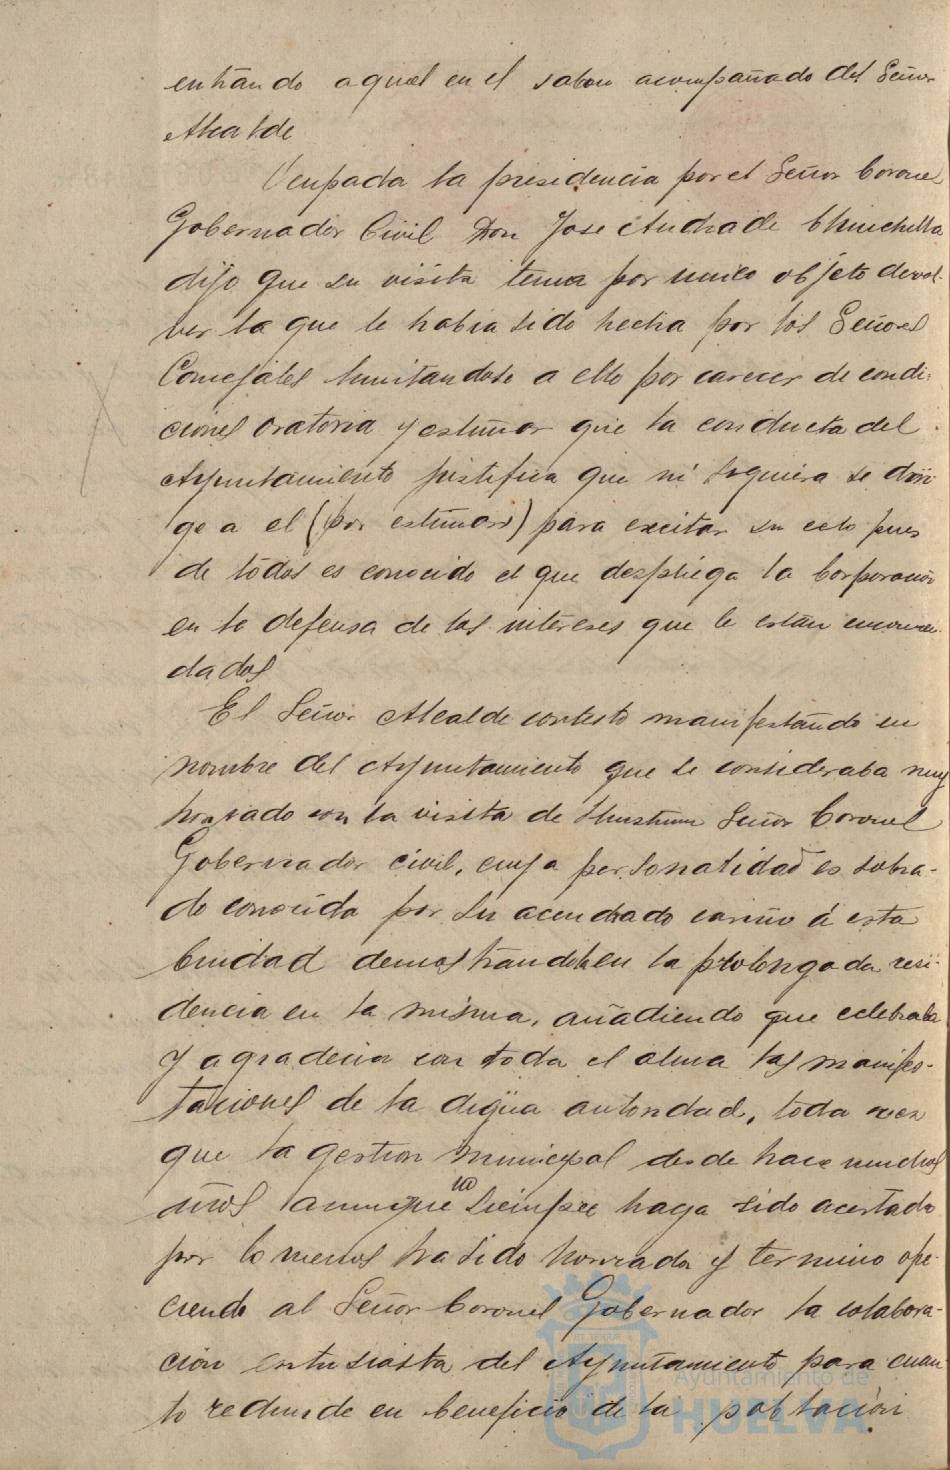 entrando aquel en el salon acompañado del Señor
Alcalde
Ocupada la presidencia por el Señor Coronel
Gobernador Civil Don Jose Andrade Chinchilla
dijo que su visita tenia por unico objeto devol-
ver la que le habia sido hecha por los Señores
Concejales limitandose a ello por carecer de condi-
ciones oratoria y estimar que la conducta del
Ayuntamiento justifica que ni siquiera se diri
ge a el (por estimar) para excitar su celo pues
de todos es conocido el que despliega la Corporación
en la defensa de los intereses que le estan encomen-
dados
El Señor Alcalde contesto manifestando en
nombre del Ayuntamiento que se consideraba muy
honrado con la visita de Ilustrisimo Señor Coronel
Gobernador civil, cuya personalidad es sobra-
do conocida por su acendrado cariño á esta
Ciudad demostrandola en la prolongada resi-
dencia en la misma, añadiendo que celebraba
y agradecia con toda el alma las manifes-
taciones de la digna autoridad, toda vez
que la gestion municipal desde hace muchos
años aunque no siempre haya sido acertada
por lo menos ha sido honrada y termino ofre-
ciendo al Señor Coronel Gobernador la colabora-
ción entusiasta del Ayuntamiento para cuan
to redunde en beneficio de la población
Ayuntamiento de
HUELVA